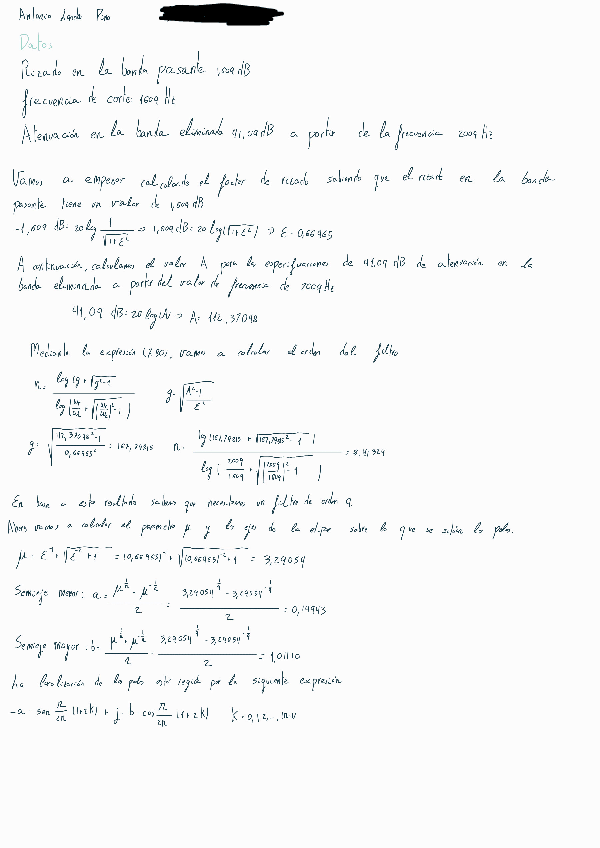 Datos
Rizado en la banda pasante 1,509 dB
frecuencia de corte 1509 Hz
Atenuación en la banda eliminada 41,09 dB a partir de la frecuencia 2009 Hz
Vamos a empezar calculando el factor de rizado sabiendo que el rizado en la banda
pasante tiene un valor de 1,509 dB
-1,509 dB = 20 log 1/√(1+ε²) => 1,509 dB = 20 log(√(1+ε²)) => ε = 0,66465
A continuación, calculamos el valor A para las especificaciones de 41,09 dB de atenuación en la
banda eliminada a partir del valor de frecuencia de 2009 Hz
41,09 dB = 20 log(A) => A = 112,37098
Mediante la expresión (7.90), vamos a calcular el orden del filtro
n = log(g + √(g²-1)) / log( + √(()² - 1)) g = √((A²-1)/ε²)
g = √((112,37098²-1)/0,66465²) = n = log( + √( - 1)) / log( + √(()² - 1)) =
En base a este resultado sabemos que necesitamos un filtro de orden 9.
Ahora vamos a calcular el parámetro μ y los ejes de la elipse sobre la que se sitúan los polos.
μ = ε⁻¹ + √(ε⁻² + 1) = (0,66465)⁻¹ + √((0,66465)⁻² + 1) = 3,29054
Semieje menor: a = (μ^(1/n) - μ^(-1/n))/2 = (3,29054^(1/9) - 3,29054^(-1/9))/2 =
Semieje mayor: b = (μ^(1/n) + μ^(-1/n))/2 = (3,29054^(1/9) - 3,29054^(-1/9))/2 =
La localización de los polos está regida por la siguiente expresión
-a sen π/2n (1+2k) + j · b cos π/2n (1+2k) k = 0,1,2